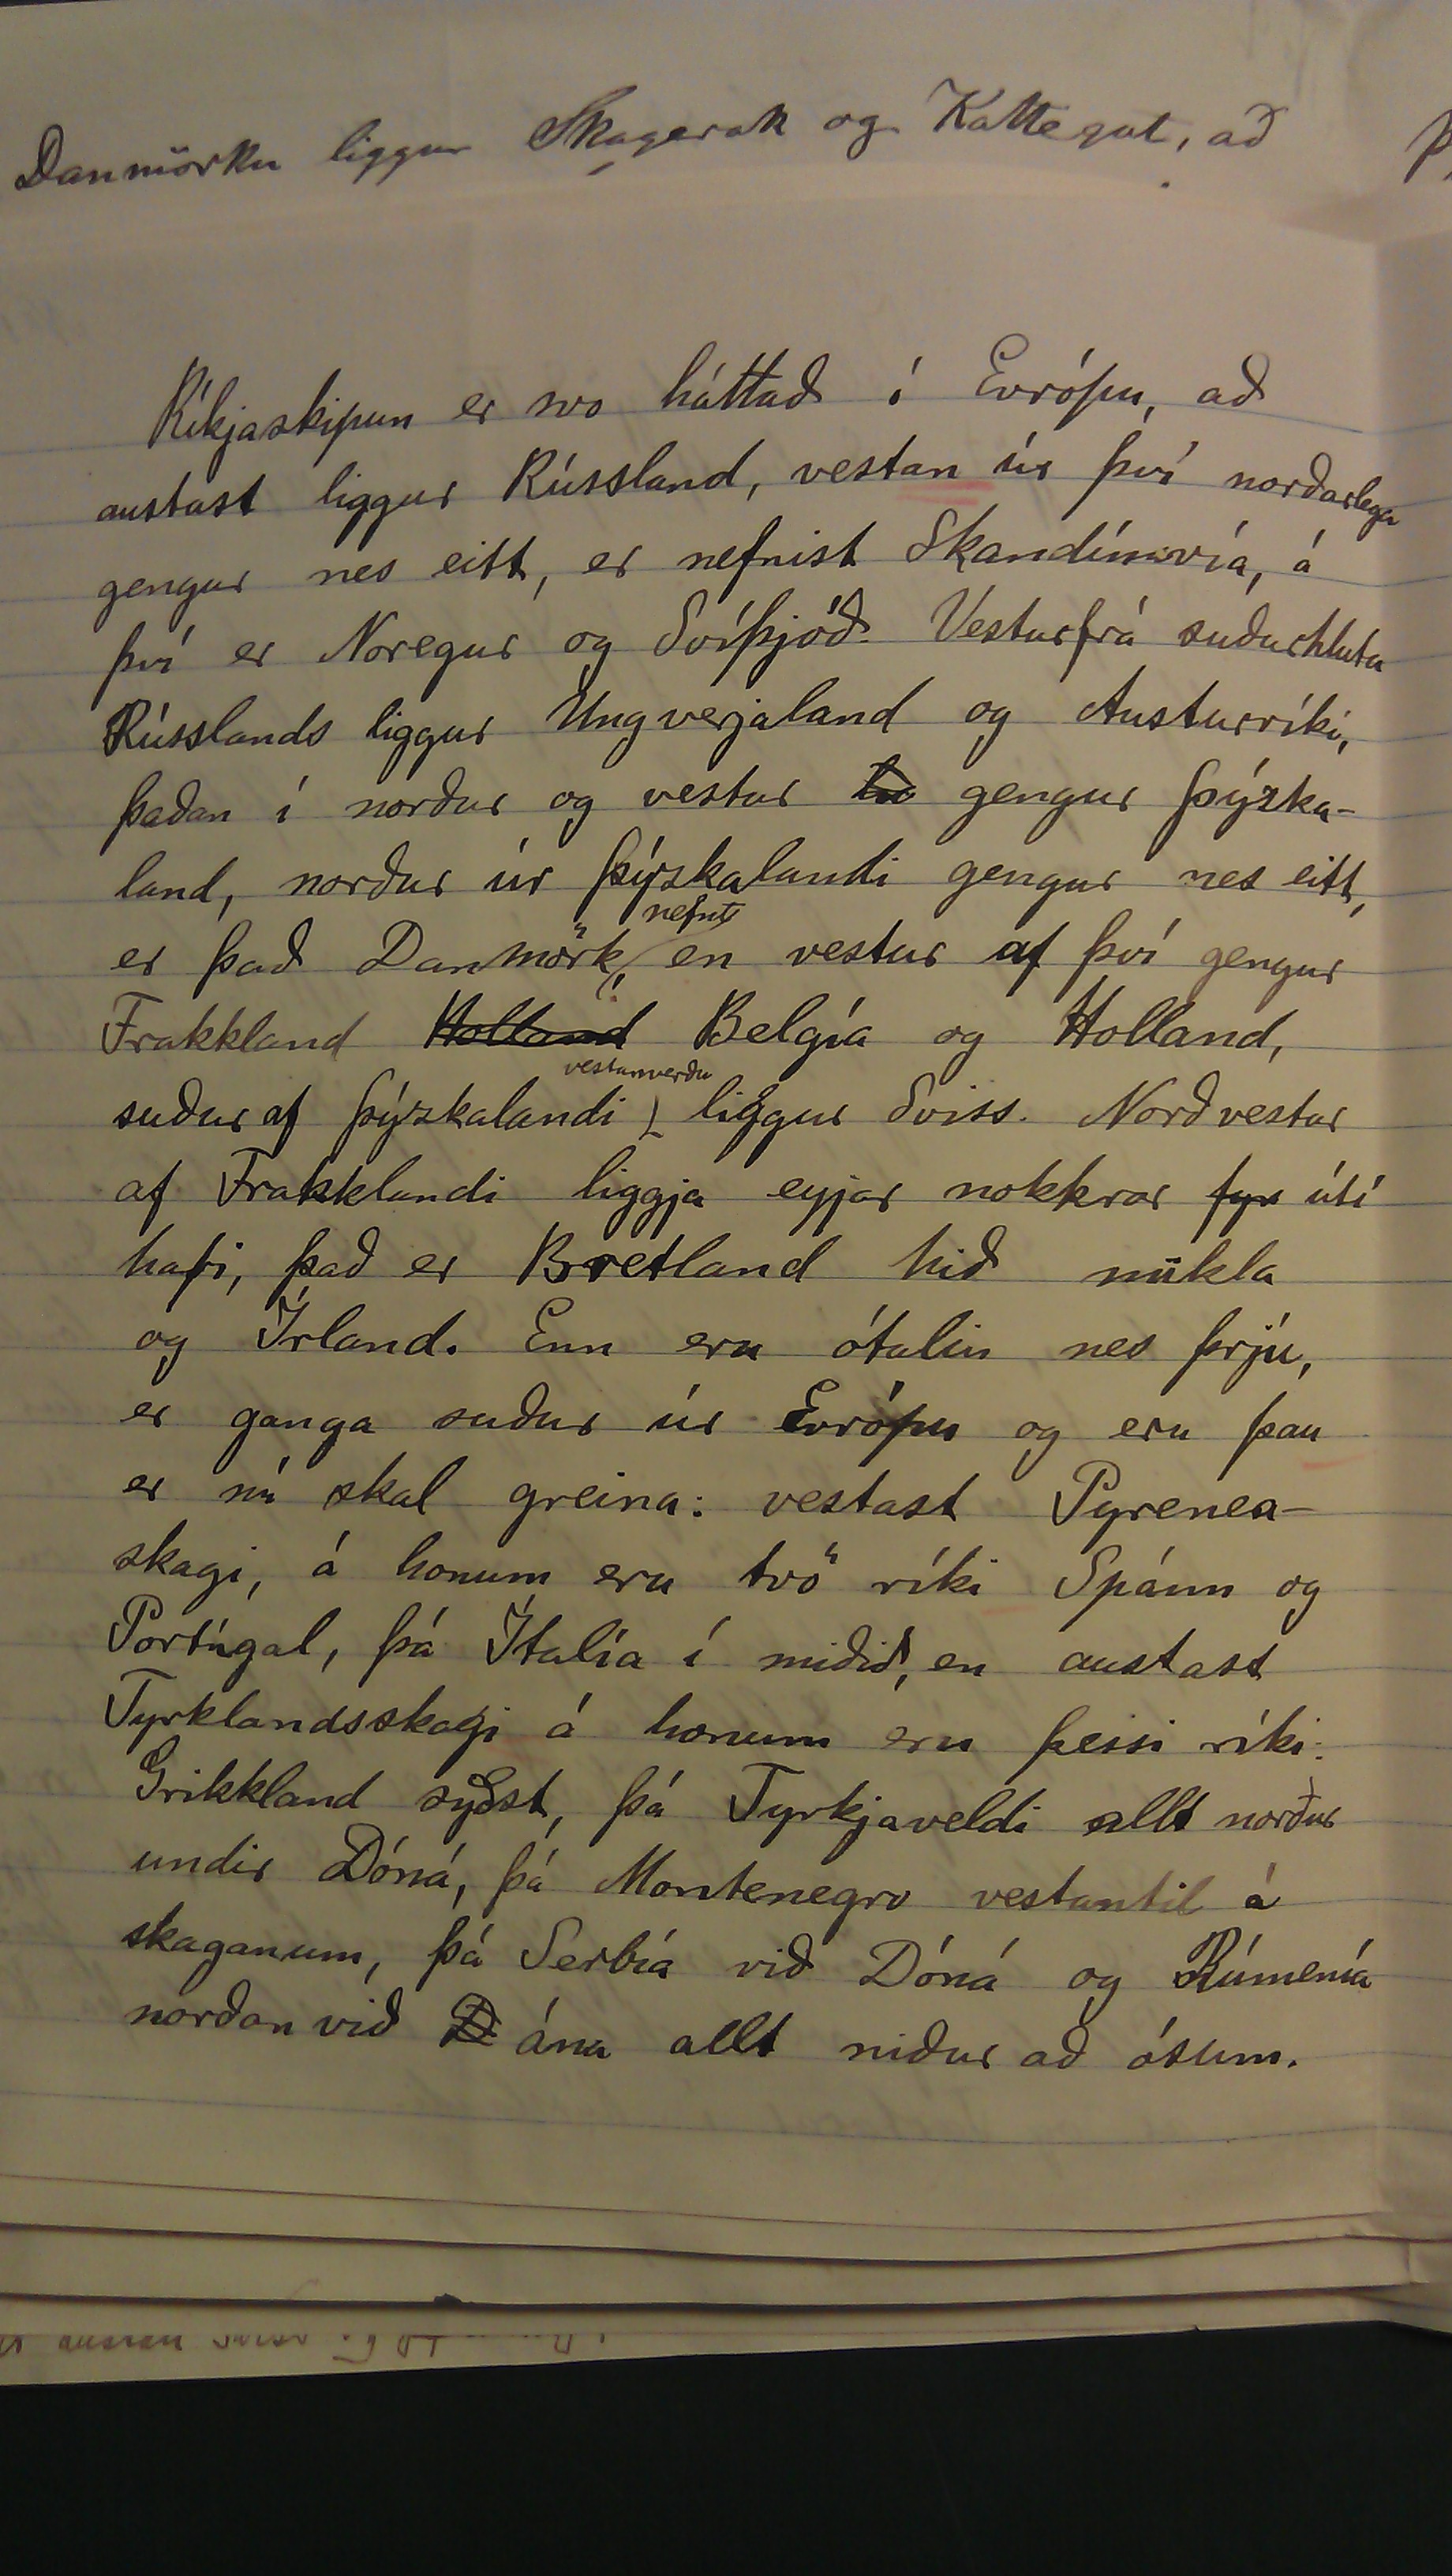 Danmörku liggur Skagerak og Kattegat, að
Ríkjaskipun er svo háttað í Evrópu, að
austast liggur Rússland, vestan úr því norðarlega
gengur nes eitt, er nefnist Skandínavía, á
því er Noregur og Svíþjóð. Vestur frá suðurhluta
Rússlands liggur Ungverjaland og Austurríki,
þaðan í norður og vestur gengur Þýzka-
land, norður úr Þýzkalandi gengur nes eitt,
nefnt
er það Danmörk, en vestur af því gengur
Frakkland Holland Belgía og Holland,
vestanverðu
suður af Þýzkalandi liggur Sviss. Norðvestur
af Frakklandi liggja eyjar nokkrar fyr útí
hafi, það er Bretland hið mikla
og Írland. Enn eru ótalin nes þrjú,
er ganga suður úr Evrópu og eru þau
er nú skal greina: vestast Pyrenea-
skagi, á honum eru tvö ríki Spánn og
Portúgal, þá Ítalía í miðið, en austast
Tyrklandsskagi á honum eru þessi ríki:
Grikkland syðst, þá Tyrkjaveldi allt norður
undir Dóná, þá Montenegro vestantil á
skaganum, þá Serbía við Dóná og Rúmenía
norðan við D ána allt niður að ósum.